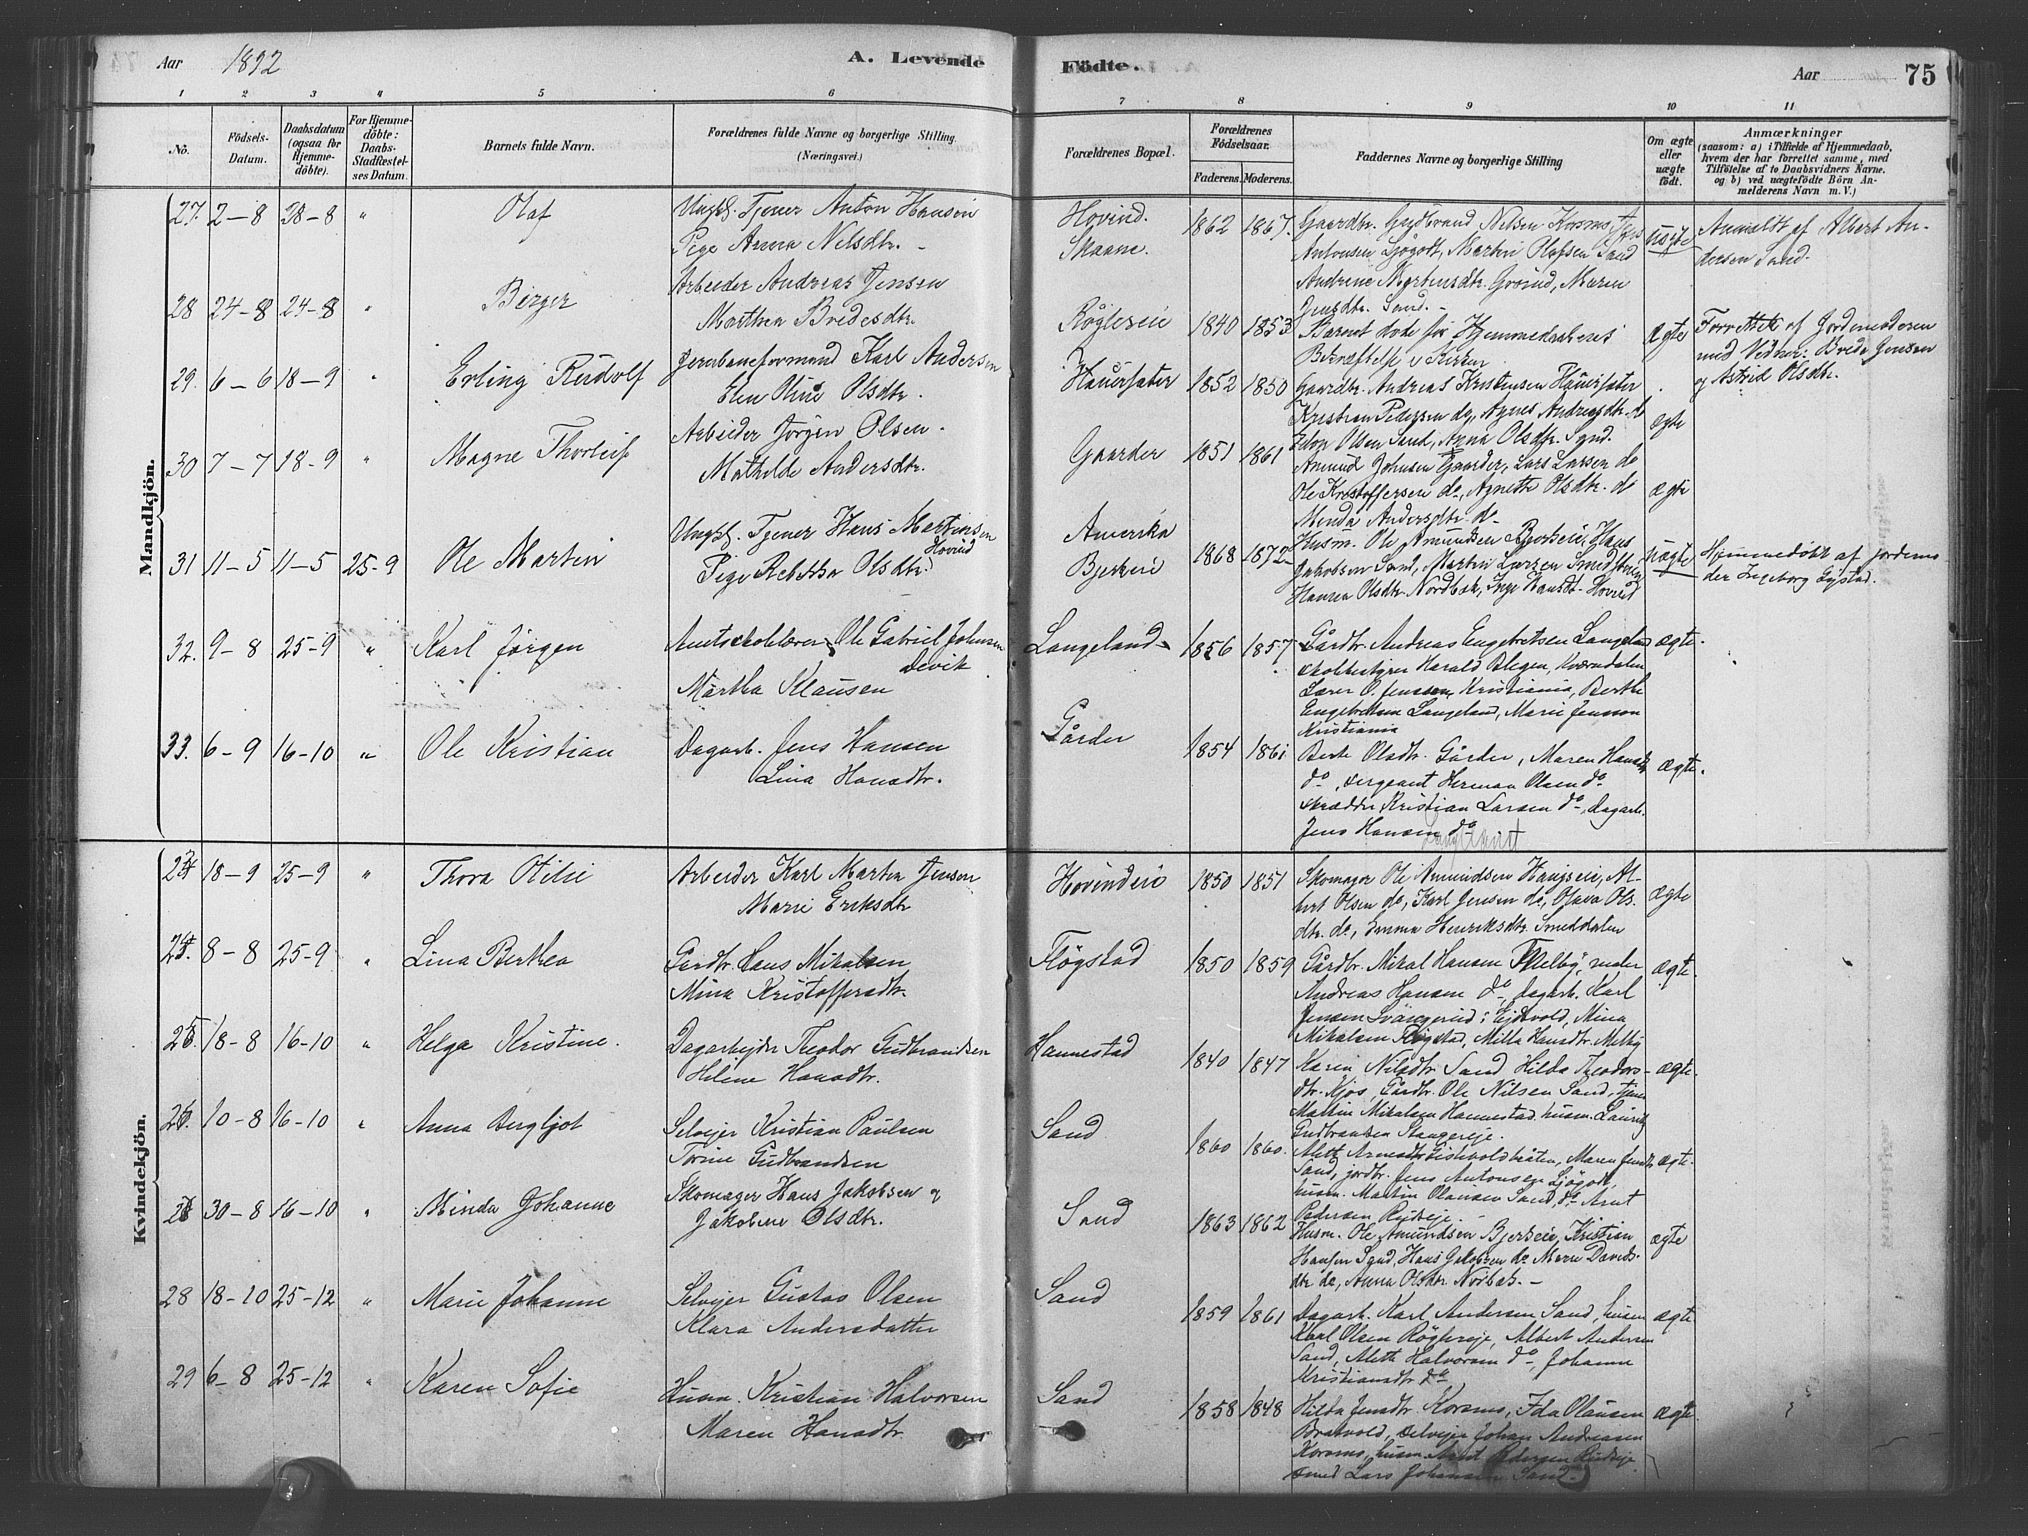 Aar 1892
A. Levende
Födte.
Aar
75
1 2 3 4 5 6 7 8 9 10 11
No.
Födsels-Datum.
Daabsdatum (ogsaa for Hjemmedöbte).
For Hjemmedöbte: Daabs-Stadfæstelses Datum.
Barnets fulde Navn.
Forældrenes fulde Navne og borgerlige Stilling
(Næringsvei.)
Forældrenes Bopæl.
Forældrenes Födselsaar.
Faderens. Moderens.
Faddernes Navne og borgerlige Stilling
Om ægte eller uægte födt.
Anmærkninger
(saasom: a) i Tilfælde af Hjemmedaab,
hvem der har forrettet samme, med
Tilföielse af to Daabsvidners Navne.
og b) ved uægtefödte Börn Anmelderens Navn m. V.)
Mandkjön.
27. 2-8 28-8 " Olaf
Ungk. Tjener Anton Hansen
Pige Anna Nilsdtr. -
Hovind.
Skaane.
1862 1867.
Gaardbr. Gudbrand Nilsen Korsmo, Jens
Antonsen Sjögott, Martin Olafsen Sand
Andrine Mortensdtr. Grönd, Maren
Jensdtr. Sand. -
uægte
Anmeldt af Albert Andersen Sand.
28 24-8 24-8 " Birger
Arbeider Andreas Jensen
Marthea Bredesdtr.
Røglereie
1840 1853
Barnet døde før Hjemmedaabens
Bekræftelse i Kirken
Ægte
Forrettet af Jordemoderen
med Vidner: Brede Jensen
og Astrid Olsdtr.
29. 6-6 18-9 " Erling Rudolf
Jernbaneformand Karl Andersen
Elen Oline Olsdtr.
Hauersæter
1852 1850
Gaardbr. Andreas Kristensen Hauersæter
Kristian Pedersen do, Agnes Andreasdtr. do
Edvp Olsen Sand, Anna Olsdtr. Sand.
ægte
30 7-7 18-9 " Magne Thorleif
Arbeider Jørgen Olsen.
Mathilde Andersdtr.
Gaarder
1851 1861
Amund Johnsen Gaarder, Lars Larsen do
Ole Kristoffersen do, Agnethe Olsdtr. do
Minda Andersdtr. do
ægte
31 11-5 11-5 25-9 Ole Martin
Ungk. Tjener Hans Martinsen
Hovind
Pige Rebekka Olsdtr.
Amerika
Bjerkeie
1868 1872
Husm. Ole Amundsen Bjerkeeie, Hans
Jakobsen Sand, Martin Larsen Smedstuen
Hanna Olsdtr. Nordbæk, Inge Hansdtr. Hovind
uægte
Hjemmedøbt af Jordemoder Ingeborg Gystad.
32. 9-8 25-9 " Karl Jørgen
Amtsskolelærer Ole Gabriel Johnsen
Devik
Martha Klausen
Langeland
1856 1857
Gårdbr. Andreas Engebretsen Langeland
skolebestyrer Harald Blegen, Kværndalen
Lærer O. Jenssen, Kristiania, Berthe
Engebretsen Langeland, Marie Jenssen
Kristiania
ægte.
33. 6-9 16-10 " Ole Kristian
Dagarb. Jens Hansen
Lina Hansdtr.
Gårder
1854 1861
Berte Olsdtr. Gårder, Maren Hansdtr
do, sergeant Herman Olsen do
skrædder Kristian Larsen do, dagarb.
Jens Hansen do
ægte.
Kvindekjön.
23 18-9 25-9 " Thora Otilie
Arbeider Karl Martin Jensen
Marie Eriksdtr
Hovindeie
1850 1851
Skomager Ole Amundsen Haugseie, Albert Olsen do, Karl Jensen do, Olava Olsdtr. do, Emma Henriksdtr. Smeddalen
ægte
24. 8-8 25-9 " Lina Berthea
Gårdbr. Hans Mikalsen
Mina Kristoffersdtr.
Fløgstad
1850 1859
Gårdbr. Mikal Hansen Melby, maler
Andreas Hansen do, dagarb. Karl
Jensen Svangerud i Eidsvold, Mina
Mikalsen Fløgstad, Milla Hansdtr. Melby
ægte.
25. 18-8 16-10 " Helga Kristine.
Dagarbejder Theodor Gudbrandsen
Helene Hansdtr.
Hannestad
1840 1847
Karen Nilsdtr Sand Hilda Theodorsdtr. Kjos, Gårdbr. Ole Nilsen Sand, tjener
Martin Mikalsen Hannestad husm. Laurits
Gudbrandsen Stangereje.
ægte.
26. 10-8 16-10 " Anna Bergljot
Selvejer Kristian Paulsen
Torine Gudbrandsen
Sand
1860 1860.
Alett Arnesdtr. Gistvoldbråten, Maren Jensdtr
Sand, jordbr. Jens Antonsen Sjögott,
husm. Martin Olausen Sand, do Arnt
Pedersen Rudseje. -
ægte.
27 30-8 16-10 " Minda Johanne
Skomager Hans Jakobsen og
Jakobine Olsdtr.
Sand
1863 1862
Husm. Ole Amundsen Bjerkeie, Kristian
Hansen Sand, Hans Jakobsen do Marie Davidsdtr do, Anna Olsdtr Norbæk. -
ægte
28 18-10 25-12 " Marie Johanne
Selvejer Gustav Olsen
Klara Andersdatter
Sand
1859 1861
Dagarb. Karl Andersen Sand, husm.
Karl Olsen Röglereje, Albert Andersen
Sand, Aleth Halvorsen do, Johanne
Kristiansdtr do
ægte.
29 6-8 25-12 " Karen Sofie
Husm. Kristian Halvorsen
Maren Hansdtr
Sand
1858 1848
Hilda Jensdtr Korsmo, Ida Olausen
Bratvold, selvejer Johan Andreasen
Korsmo, husm. Arnt Pedersen Rudseje
smed Lars Johansen Sand.
ægte.